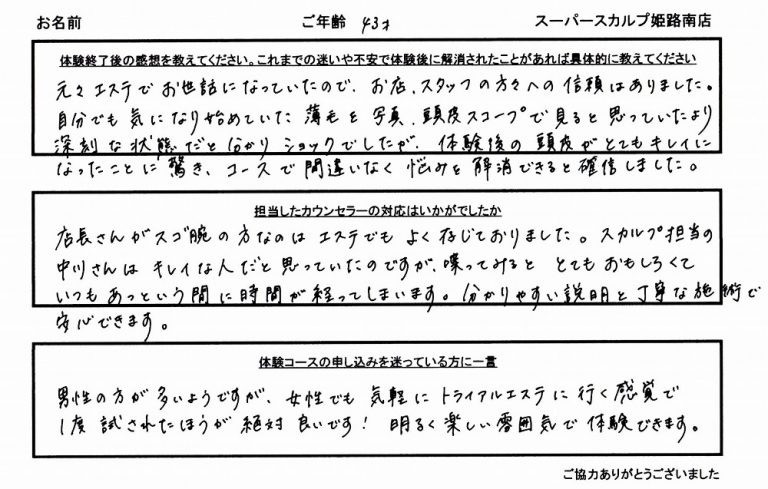 お名前 ご年齢 43才 スーパースカルプ姫路南店
体験終了後の感想を教えてください。これまでの迷いや不安で体験後に解消されたことがあれば具体的に教えてください
元々エステでお世話になっていたので、お店、スタッフの方々への信頼はありました。
自分でも気になり始めていた薄毛を写真、頭皮スコープで見ると思っていたより
深刻な状態だと分かりショックでしたが、体験後の頭皮がとてもキレイに
なったことに驚き、コースで間違いなく悩みを解消できると確信しました。
担当したカウンセラーの対応はいかがでしたか
店長さんがスゴ腕の方なのはエステでもよく存じておりました。スカルプ担当の
中川さんはキレイな人だと思っていたのですが、喋ってみるととてもおもしろくて
いつもあっという間に時間が経ってしまいます。分かりやすい説明と丁寧な施術で
安心できます。
体験コースの申し込みを迷っている方に一言
男性の方が多いようですが、女性でも気軽にトライアルエステに行く感覚で
1度試されたほうが絶対良いです！明るく楽しい雰囲気で体験できます。
ご協力ありがとうございました